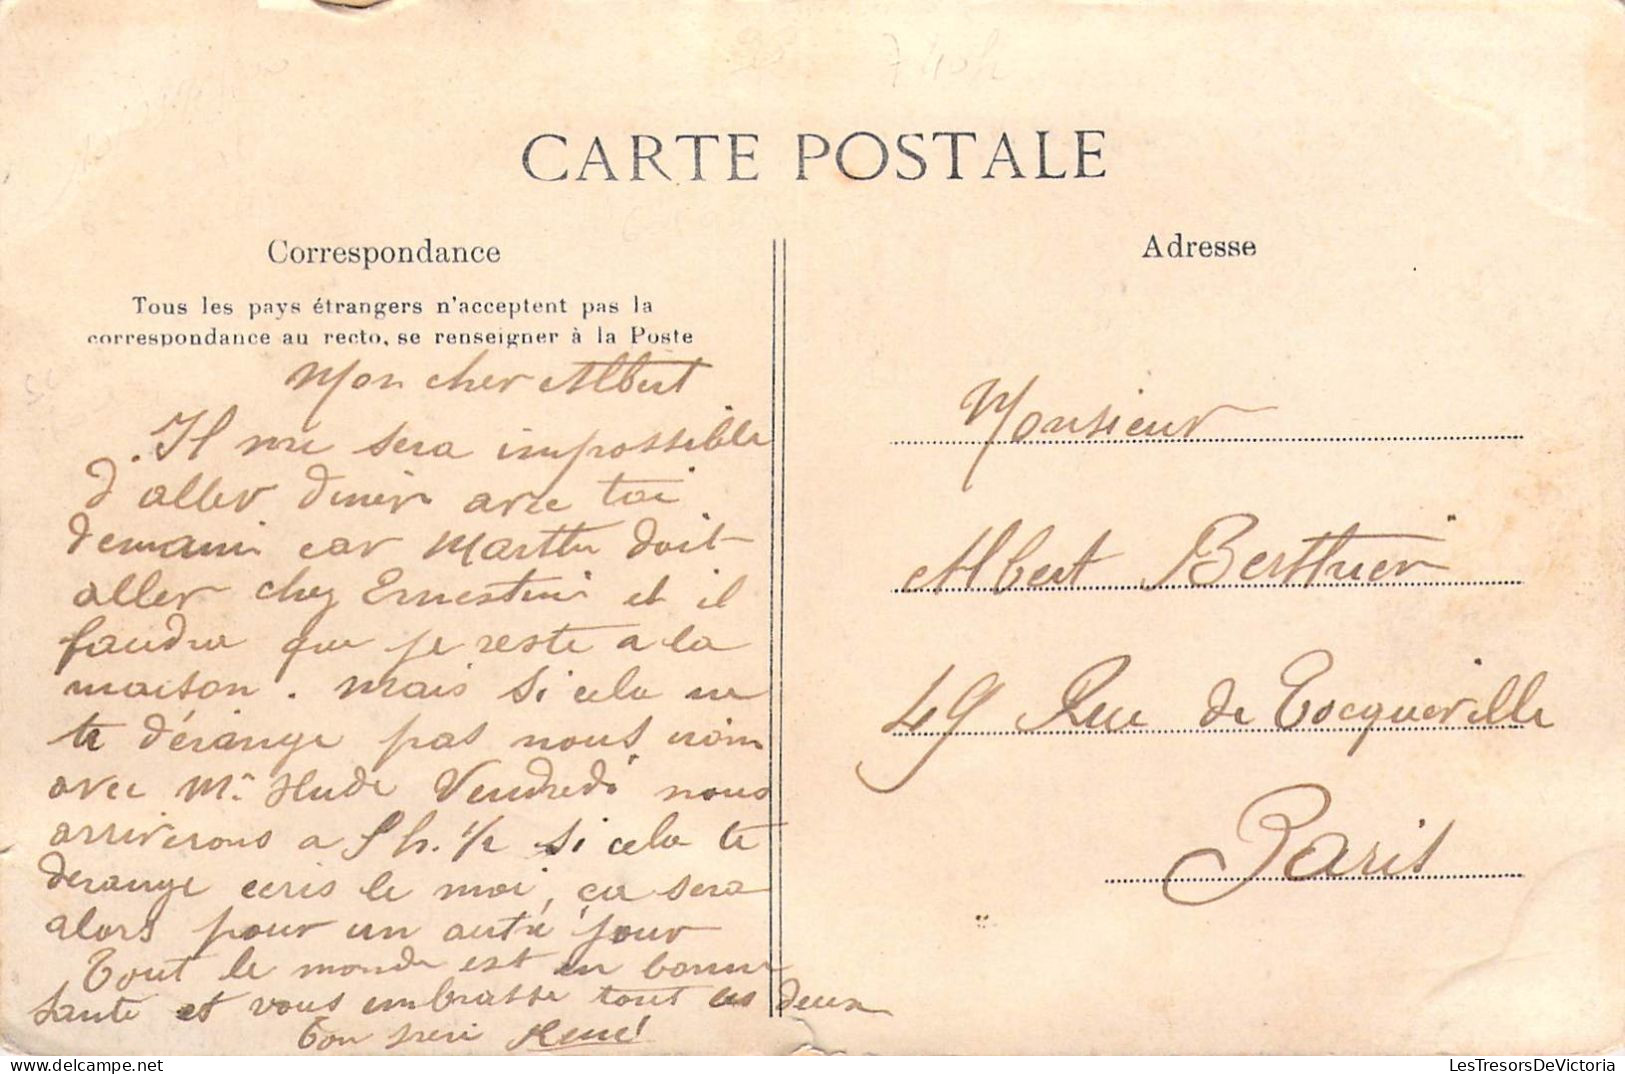 CARTE POSTALE
Correspondance
Tous les pays étrangers n'acceptent pas la
correspondance au recto, se renseigner à la Poste
Mon cher Albert
Il me sera impossible
d'aller diner avec toi
demain car Marthe doit
aller chez Ernestine et il
faudra que je reste a la
maison. Mais si cela ne
te dérange pas nous irons
avec Mr Hude Vendredi nous
arriverons a 5h. 1/2 si cela te
derange ecris le moi, ça sera
alors pour un autre jour
Tout le monde est en bonne
Santé et vous embrasse tout les deux
Ton frere René
Adresse
Monsieur
Albert Berthier
49 Rue de Tocqueville
Paris
LesTresorsDeVictoria